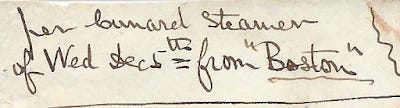 per Cunard Steamer
of Wed Dec 5th from "Boston"